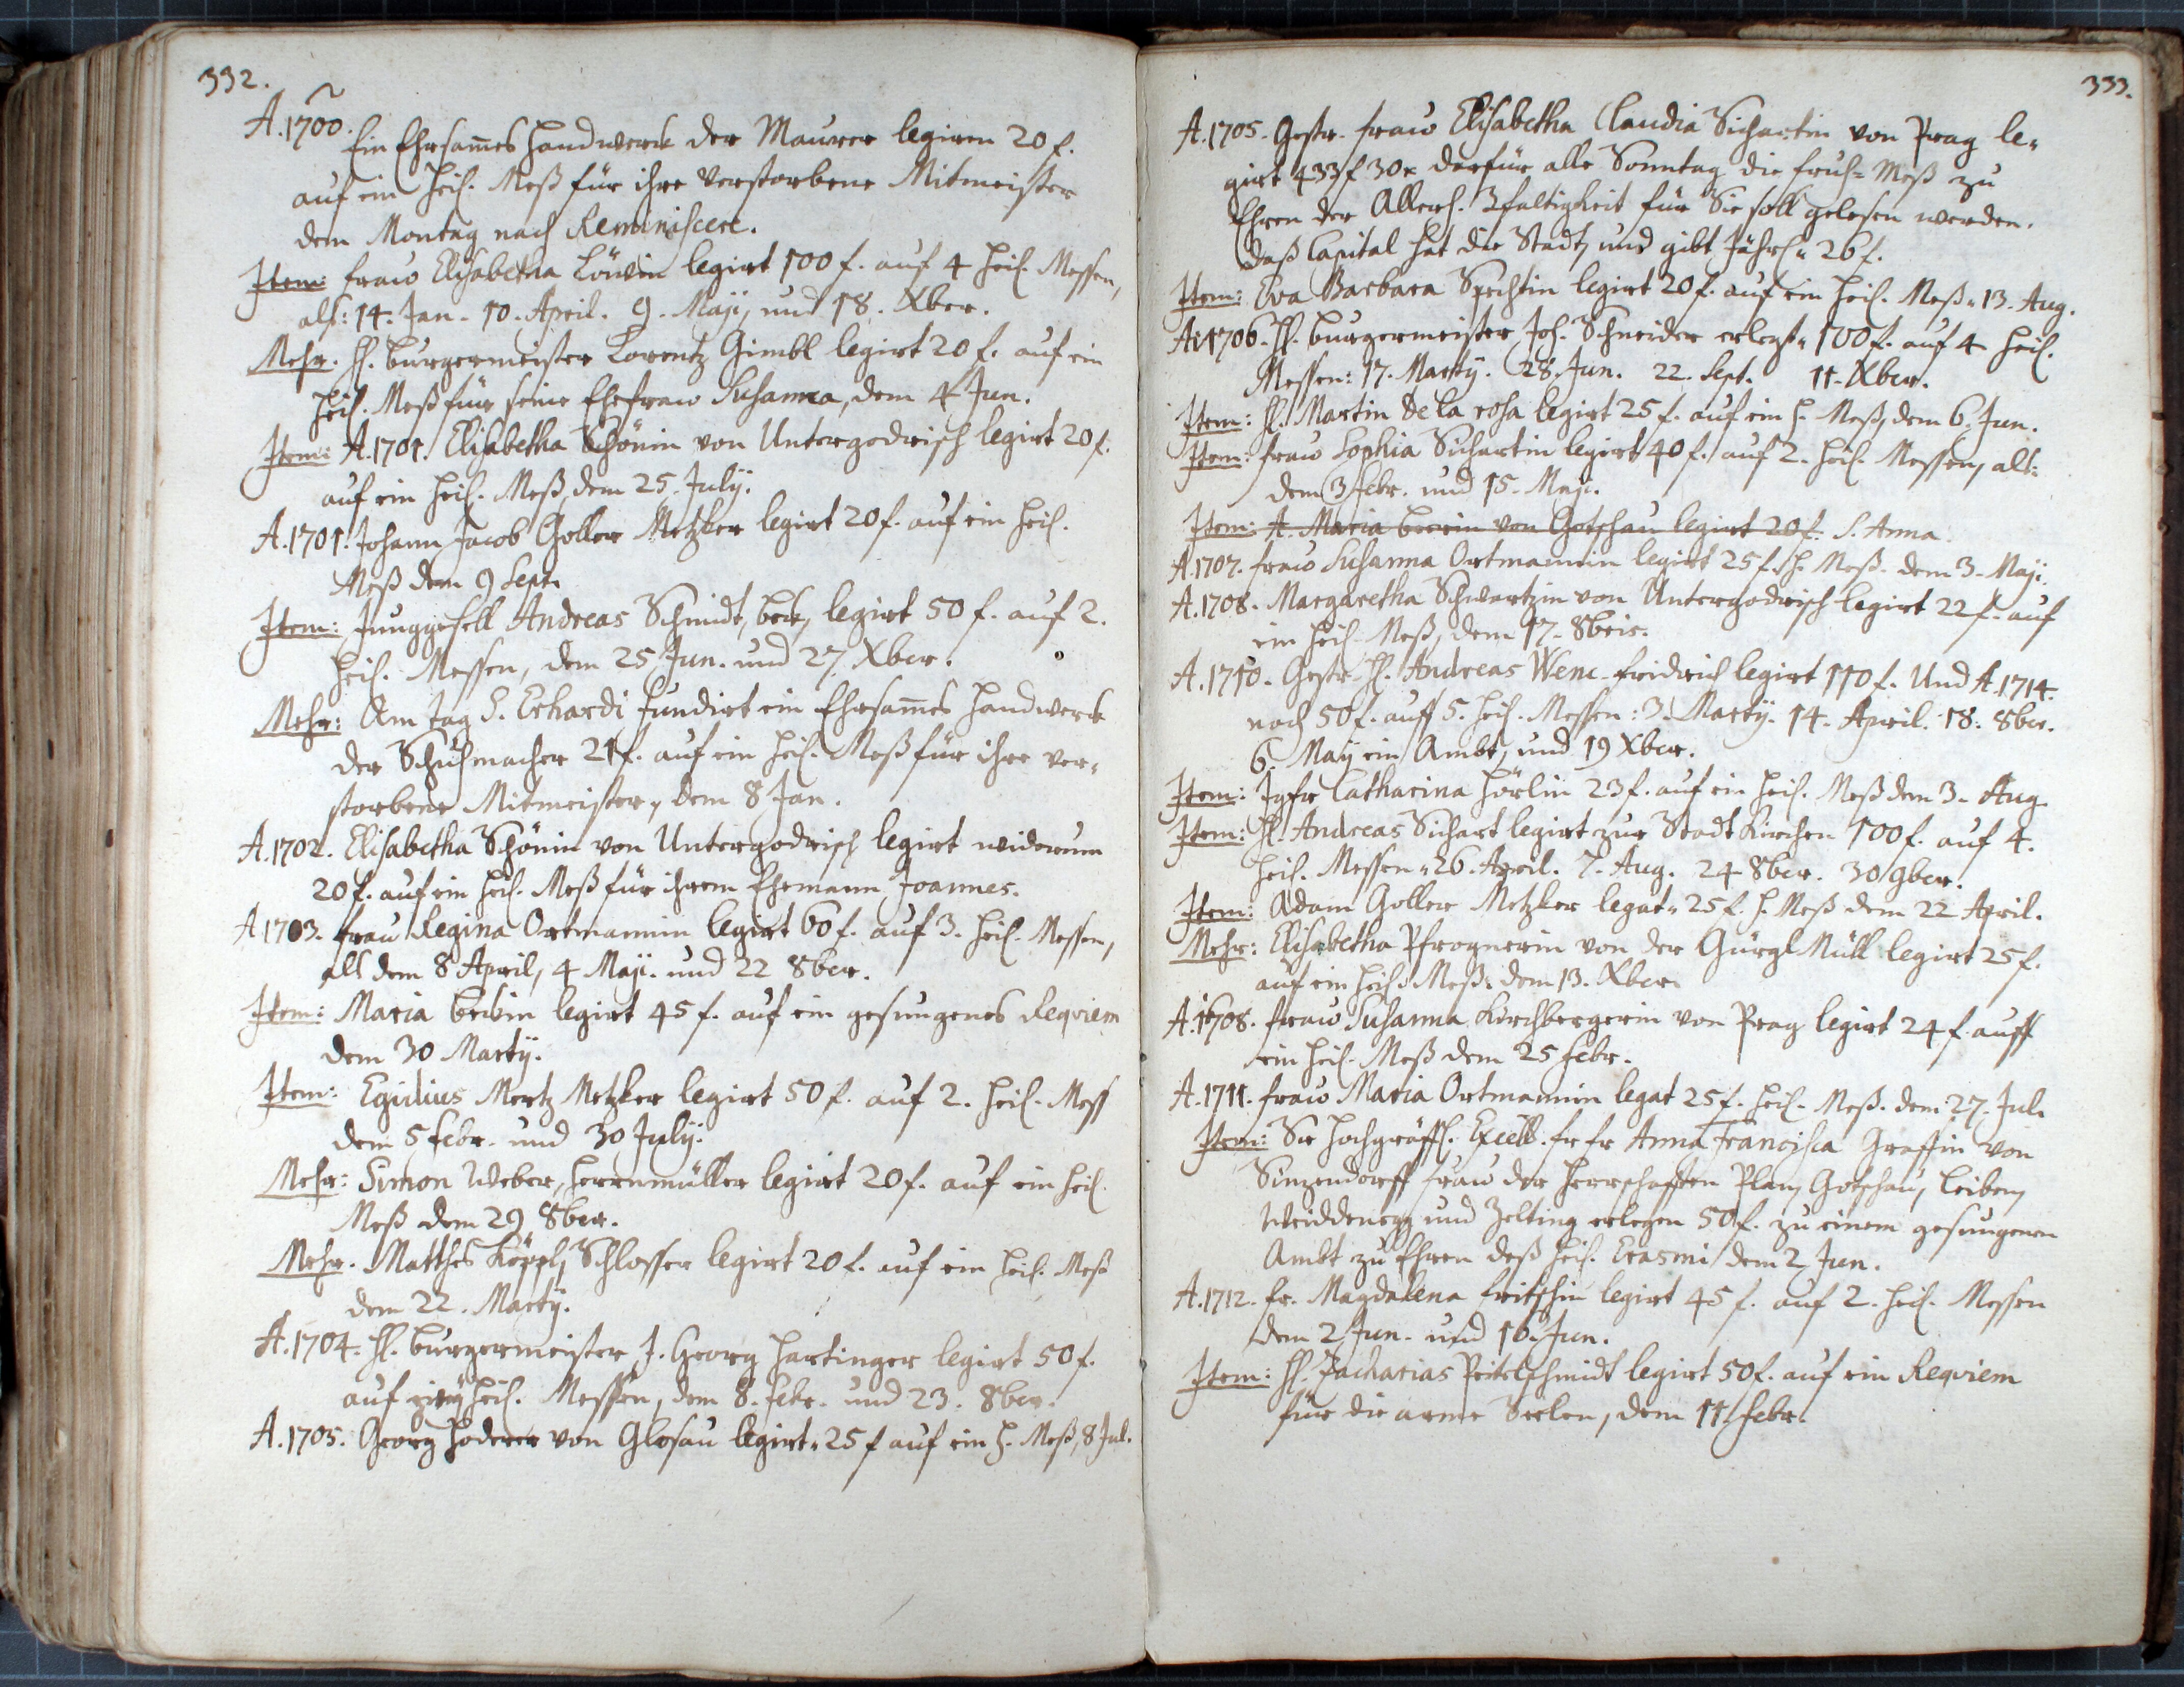 332.
A. 1700.
Ein Ehrsames Handwerck der Maurer legiren 20 f.
auf ein heil. Meß für ihre verstorbene Mitmeister
dem Montag nach Reminiscere.
Item: Fraw Elisabetha Löwin legirt 100 f. auf 4 heil. Messen,
als: 14. Jan. 10. April. 9. Maji, und 18. Xber.
Mehr. H. Burgermeister Lorentz Gimbl legirt 20 f. auf ein
heil. Meß für seine Ehefraw Susanna, dem 4 Jun.
Item: A. 1701. Elisabetha Schönin von Untergodrisch legirt 20 f.
auf ein heil. Meß, dem 25. July.
A. 1701. Johann Jacob Goller Metzker legirt 20 f. auf ein heil.
Meß dem 9 Sept.
Item: Junggesell Andreas Schmidt, beck, legirt 50 f. auf 2.
heil. Messen, dem 25 Jun. und 27. Xber.
Mehr: Am Tag S. Erhardi fundirt ein Ehrsames Handwerck
der Schuhmacher 21 f. auf ein heil. Meß für ihre ver-
storbene Mitmeister, dem 8 Jan.
A. 1702. Elisabetha Schönin von Untergodrisch legirt widerum
20 f. auf ein heil. Meß für ihrem Ehemann Joannes.
A 1703. Frau Regina Ortmannin legirt 60 f. auf 3. heil. Messen,
als dem 8 April, 4 Maji. und 22 8ber.
Item: Maria legirt 45 f. auf ein gesungenes Reqviem
dem 30 Martij.
Item: Egidius Mertz Metzker legirt 50 f. auf 2. heil. Mess
dem 5 Febr. und 30 July.
Mehr: Simon Weber, Herrnmüller legirt 20 f. auf ein heil.
Meß dem 29 8ber.
Mehr. Matthes Köppl, Schlosser legirt 20 f. auf ein heil. Meß
dem 22. Martij.
A. 1704. H. Burgermeister J. Georg Hartinger legirt 50 f.
auf zweÿ heil. Messen, dem 8. Febr. und 23. 8ber.
A. 1705. Georg Hoderer von Glosau legirt 25 f auf ein h. Meß, 8 Jul.
333.
A. 1705. Gestr. Fraw Elisabetha Claudia Sichartin von Prag le-
girt 433 f 30 x darfür alle Sonntag die fruh-Meß zu
Ehren der Allerh. 3faltigkeit für Sie soll gelesen werden.
Daß Capital hat die Stadt, und gibt Jährl. 26 f.
Item: Eva Barbara Spechtin legirt 20 f. auf ein heil. Meß 13. Aug.
Ai 1706. H. Burgermeister Joh. Schneider erlegt 100 f. auf 4 heil.
Messen: 17. Martij. 28. Jun. 22. Sept. 11. Xber.
Item: H. Martin De la rosa legirt 25 f. auf ein h. Meß, dem 6. Jun.
Item: Fraw Sophia Sichartin legirt 40 f. auf 2. heil. Messen, als:
dem 3 Febr. und 15. Maji.
Item: A. Maria von Gotschau legirt 20 f. S. Anna.
A. 1707. Fraw Susanna Ortmannin legirt 25 f. h. Meß. dem 3. Maji.
A. 1708. Margaretha Schwartzin von Untergodrisch legirt 22 f. auf
ein heil. Meß, dem 17. 8bris.
A. 1710. Gestr. H. Andreas Wenc. Fridrich legirt 110 f. Und A. 1714.
noch 50 f. auff 5. heil. Messen: 3. Martij. 14. April. 18. 8ber.
6. Maÿ ein Ambt, und 19 Xber.
Item: Jgfr Catharina Hörlin 23 f. auf ein heil. Meß dem 3. Aug.
Item: H. Andreas Sichart legirt zur Stadt Kirchen 100 f. auf 4.
heil. Messen 26. April. 7. Aug. 24 8ber. 30 9ber.
Item: Adam Goller Metzker legat 25 f. h. Meß dem 22 April.
Mehr: Elisabetha Pfrognerin von der Gürgl Müll legirt 25 f.
auf ein heil. Meß dem 13. Xber
A. 1708. Fraw Susanna Kirchbergerin von Prag legirt 24 f. auff
ein heil. Meß dem 25 Febr.
A. 1711. Fraw Maria Ortmannin legat 25 f. heil. Meß. dem 27. Jul.
Item: Die Hochgräffl. Excell. Fr Fr Anna Francisca Graffin von
Sinzendorff Frau der Herrschafften Plan, Gotschau, Leiben,
Weiddenegg und Zelting erlegen 50 f. zu einem gesungenen
Ambt zu Ehren deß heil. Erasmi dem 2 Jun.
A. 1712. Fr. Magdalena Fritschin legirt 45 f. auf 2. heil. Messen
dem 2 Jun. und 10. Jun.
Item: H. Zacharias Peitelschmidt legirt 50 f. auf ein Reqviem
für die arme Seelen, dem 11 Febr.